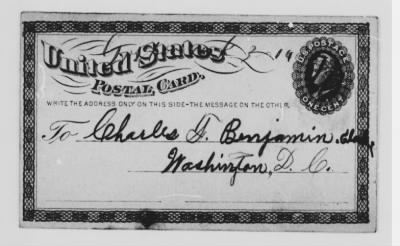 United States
POSTAL CARD.
U.S. POSTAGE
ONE CENT
WRITE THE ADDRESS ONLY ON THIS SIDE-THE MESSAGE ON THE OTHER
To Charles F. Benjamin,
Washington, D. C.